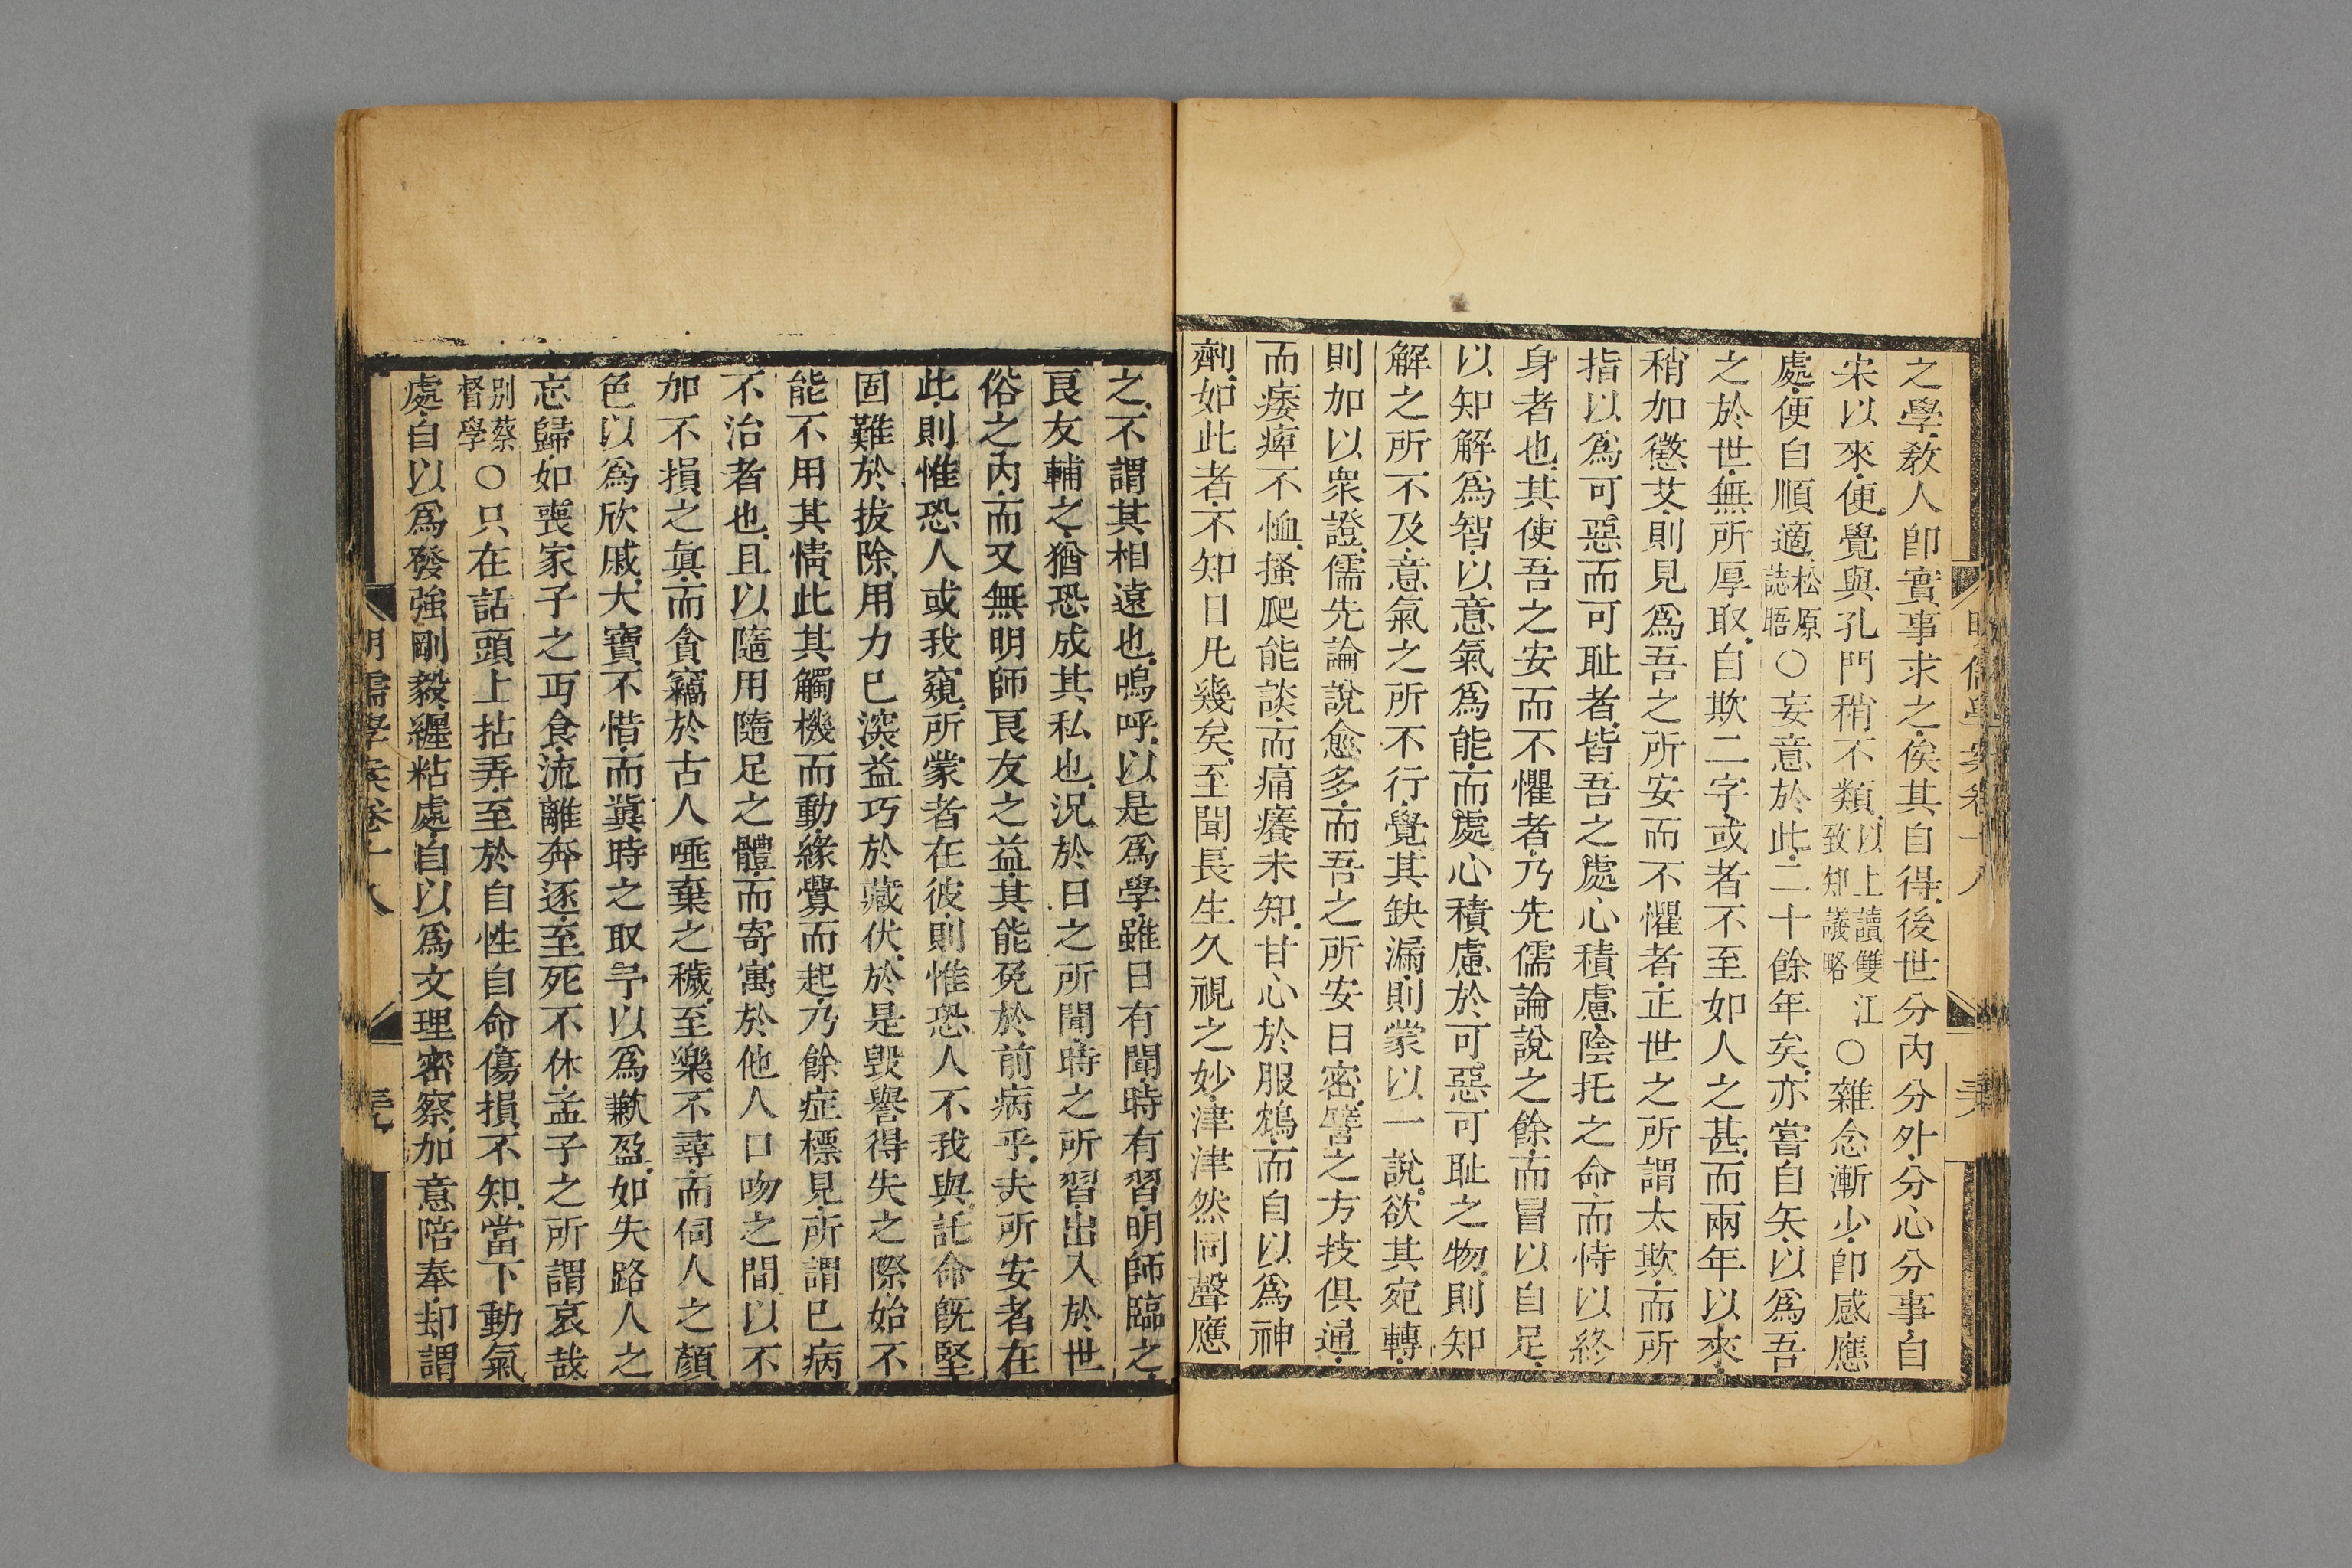 之學敎人卽實事求之俟其自得後世分內分外分心分事自
宋以來便覺與孔門稍不類以上讀雙江致知議略○雜念漸少卽感應
處便自順適松原誌晤○妄意於此二十餘年矣亦嘗自矢以爲吾
之於世無所厚取自欺二字或者不至如人之甚而兩年以來
稍加懲艾則見爲吾之所安而不懼者正世之所謂太欺而所
指以爲可惡而可耻者皆吾之處心積慮陰托之命而恃以終
身者也其使吾之安而不懼者乃先儒論說之餘而冒以自足
以知解爲智以意氣爲能而處心積慮於可惡可耻之物則知
解之所不及意氣之所不行覺其缺漏則蒙以一說欲其宛轉
則加以衆證儒先論說愈多而吾之所安日密譬之方技俱通
而痿痺不恤搔爬能談而痛癢未知甘心於服鴆而自以爲神
劑如此者不知日凡幾矣至聞長生久視之妙津津然同聲應
之不謂其相遠也嗚呼以是爲學雖日有聞時有習明師臨之
良友輔之猶恐成其私也況於日之所聞時之所習出入於世
俗之內而又無明師良友之益其能免於前病乎夫所安者在
此則惟恐人或我窺所蒙者在彼則惟恐人不我與託命旣堅
固難於拔除用力已深益巧於藏伏於是毀譽得失之際始不
能不用其情此其觸機而動緣釁而起乃餘症標見所謂已病
不治者也且以隨用隨足之體而寄寓於他人口吻之間以不
加不損之眞而貪竊於古人唾棄之穢至樂不尋而伺人之顏
色以爲欣戚大寶不惜而冀時之取予以爲歉盈如失路人之
忘歸如喪家子之丐食流離奔逐至死不休孟子之所謂哀哉
別蔡督學○只在話頭上拈弄至於自性自命傷損不知當下動氣
處自以爲發強剛毅纏粘處自以爲文理密察加意陪奉却謂
明儒學案卷十八